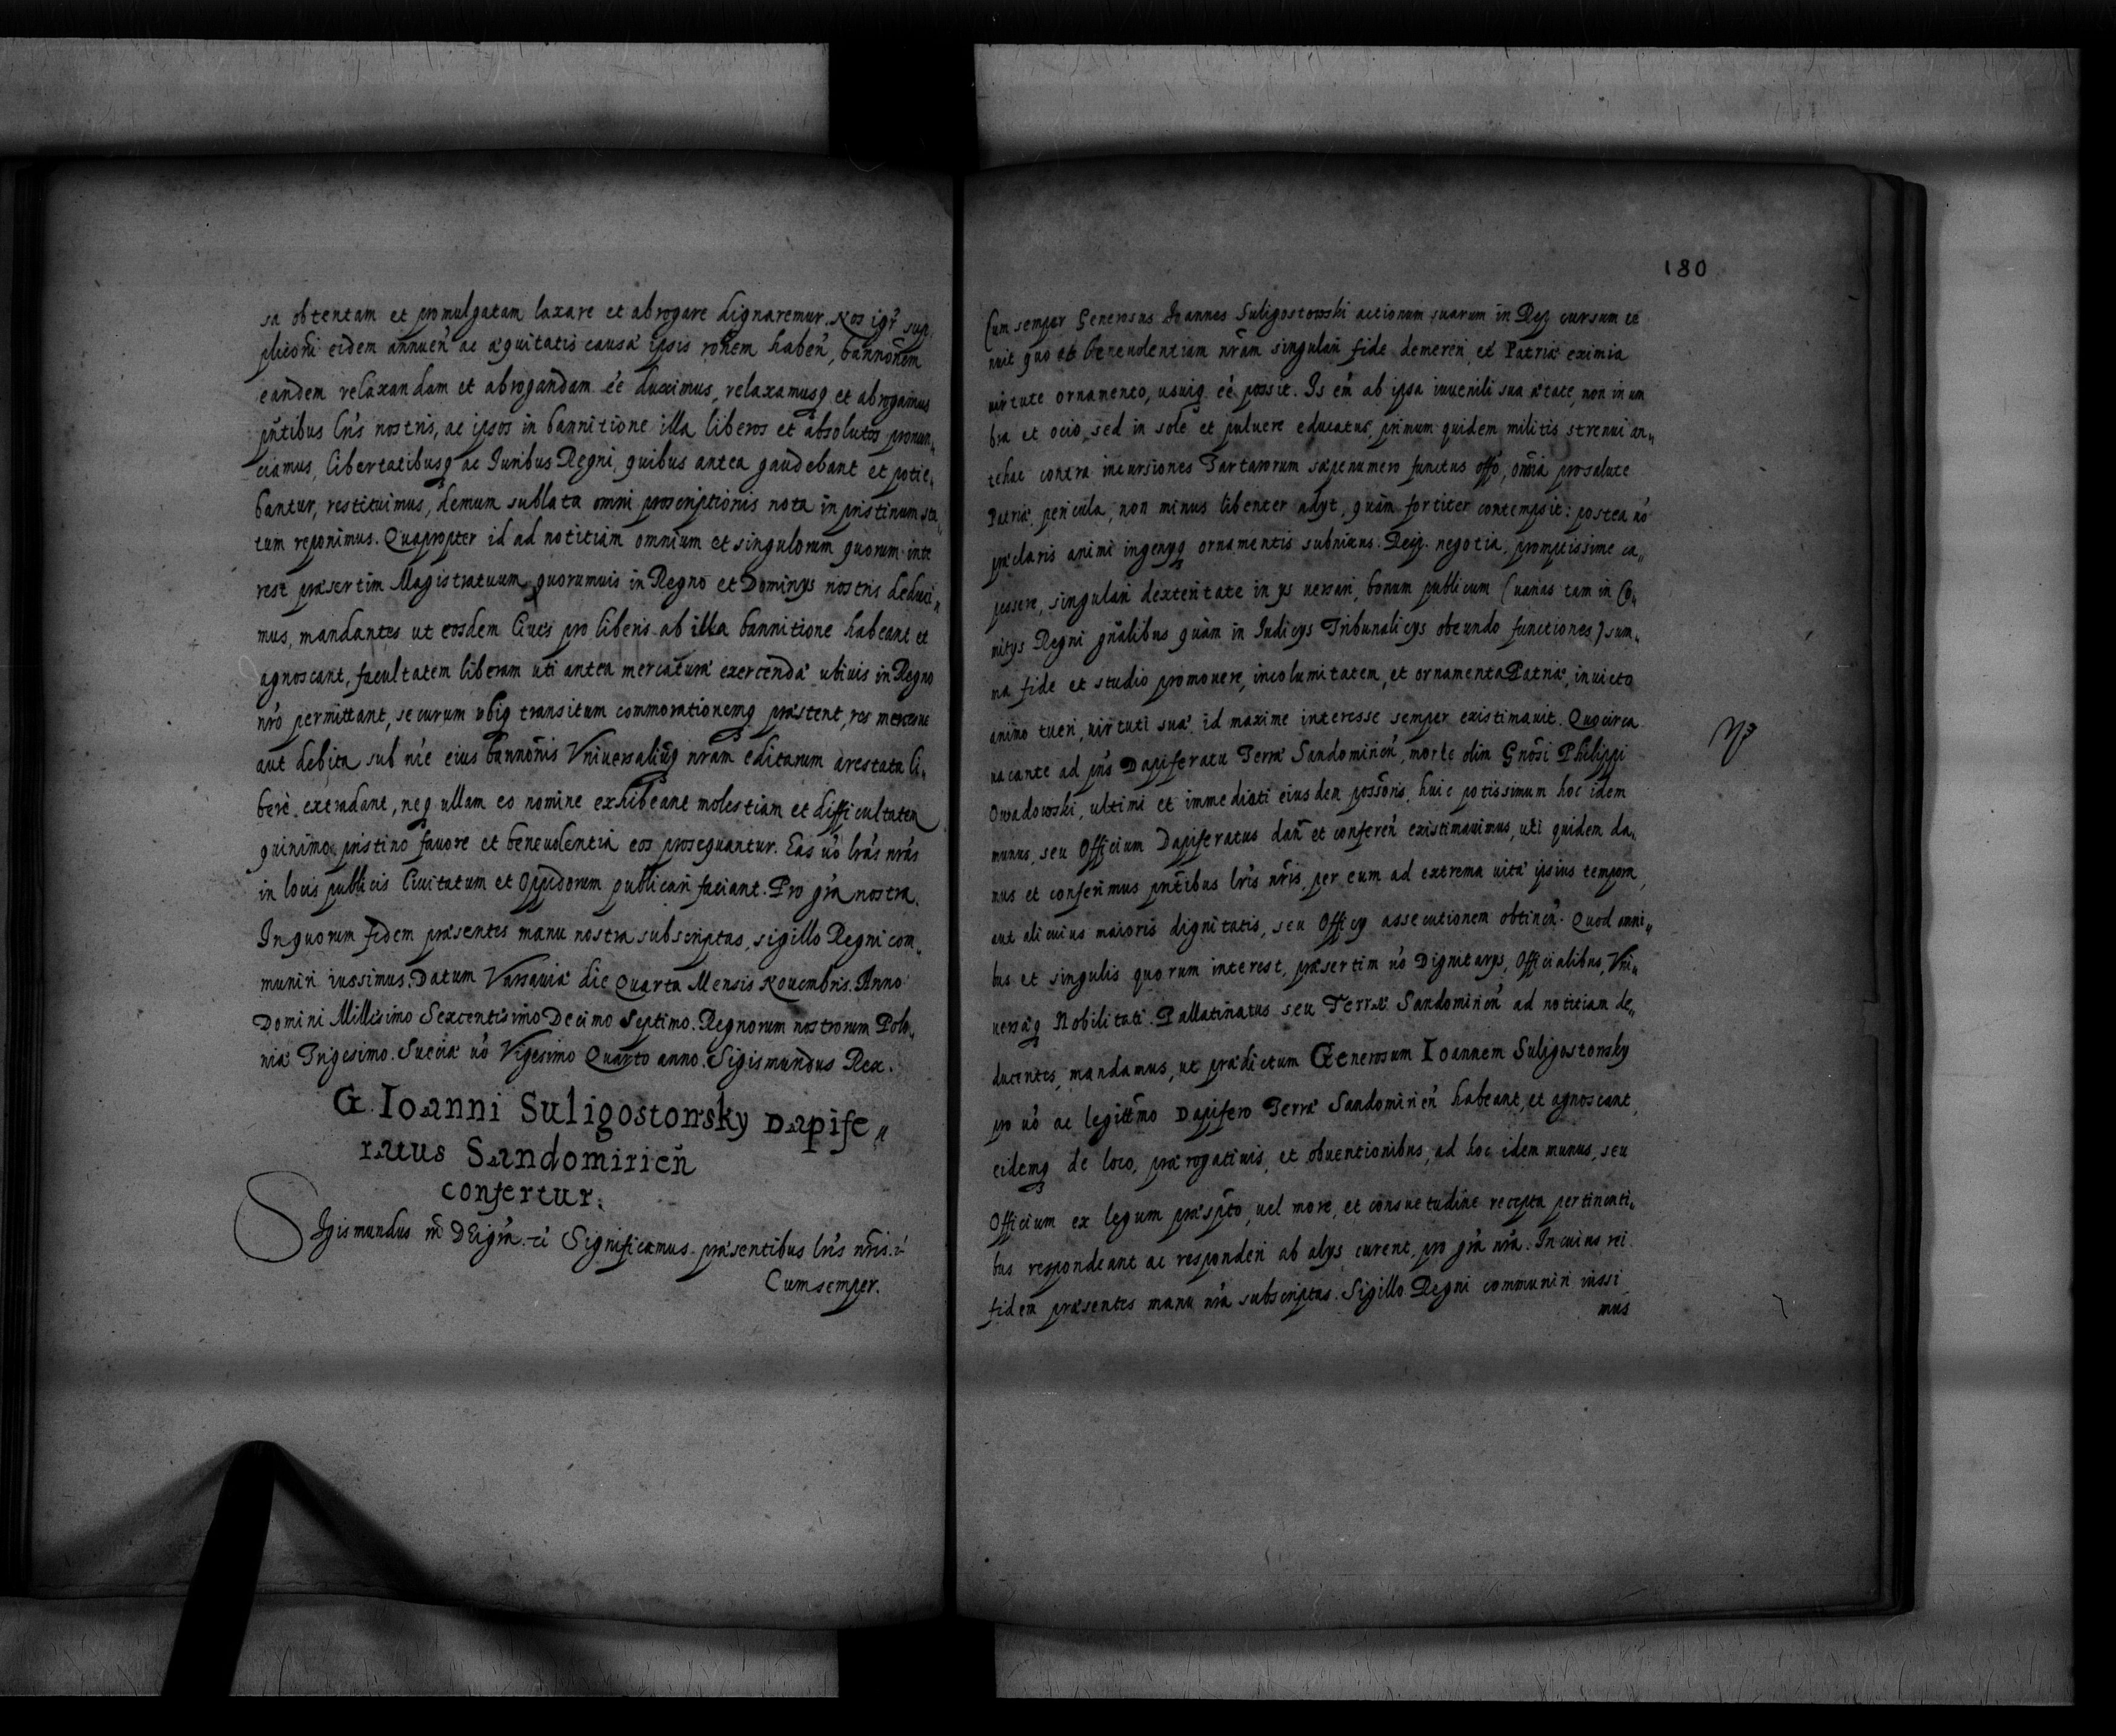 sa obtentam et promulgatam laxare et abrogare dignaremur. Nos igr̃ sup„
plicõni eidem annueñ ac æquitatis causæ ipsis rõnem habeñ, bannõnem
eandem relaxandam et abrogandam eẽ duximus, relaxamusq et abrogamus
pñtibus lr̃is nostris, ac ipsos in bannitione illa liberos et absolutos pronun„
ciamus, libertatibusq ac Iuribus Regni, quibus antea gaudebant et potie„
bantur, restituimus, demum sublata omni proscriptionis nota in pristinum sta„
tum reponimus. Quapropter id ad notitiam omnium et singulorum quorum inte
rest præsertim Magistratuum quorumuis in Regno et Dominys nostris deduci„
mus, mandantes ut eosdem Ciues pro liberis ab illa bannitione habeant et
agnoscant, facultatem liberam uti antea mercaturæ exercendæ ubiuis in Regno
nr̃o permittant, securum ubiq transitum commorationemq præstent, res mercesue
aut debita sub nr̃e eius bannõnis Vniuersaliũq nr̃am editarum arestata li„
berè extradant, neq ullam eo nomine exhibeant molestiam et difficultatem
quinimo pristino fauore et beneuolentia eos prosequantur. Eas uõ lr̃as nr̃as
in locis publicis Ciuitatum et Oppidorum publicari faciant. Pro gr̃a nostra.
In quorum fidem præsentes manu nostra subscriptas, sigillo Regni com„
muniri iussimus. Datum Varsauiæ die Quarta Mensis Nouembris. Anno
Domini Millesimo Sexcentesimo Decimo Septimo. Regnorum nostrorum Polo„
niæ Trigesimo. Sueciæ uõ Vigesimo Quarto anno. Sigismundus Rex.
G. Ioanni Suligostowsky Dapife„
ratus Sandomirieñ
confertur.
Sigismundus III DEi gr̃a. Significamus præsentibus lr̃is nr̃is.
Cum semper.
180
Cum semper Generosus Ioannes Suligostowski actionum suarum in Rep cursum te
nuit quo et beneuolentiam nr̃am singulari fide demereri, et Patriæ eximia
uirtute ornamento, usuiq eẽ possit. Is em̃ ab ipsa iuuenili sua ætate, non in um
bra et ocio, sed in sole et puluere educatus, primum quidem militis strenui an„
tehac contra incursiones Tartarorum sæpenumero functus offõ, om̃ia pro salute
Patriæ pericula, non minus libenter adyt, quàm fortiter contempsit: postea uõ
præclaris animi ingenyq ornamentis subnixus. Reip. negotia promptissime ca„
pessere, singulari dexteritate in ys uersari, bonum publicum (uarias tam in Co„
mitys Regni gñalibus quàm in Iudicys Tribunalicys obeundo functiones) sum„
ma fide et studio promouere, incolumitatem, et ornamenta Patriæ, inuicto
animo tueri, uirtuti suæ id maxime interesse semper existimauit. Quocirca
uacante ad pñs Dapiferatu Terræ Sandomirieñ, morte olim Gnõsi Philippi
Owadowski, ultimi et immediati eiusdem possõris, huic potissimum hoc idem
munus, seu Officium Dapiferatus dañ et confereñ existimauimus, uti quidem da„
mus et conferimus pñtibus lr̃is nr̃is, per eum ad extrema uitæ ipsius tempora,
aut alicuius maioris dignitatis, seu Officy assecutionem obtineñ. Quod omni„
bus et singulis quorum interest, præsertim uõ Dignitarys, Officialibus, Vni„
uersæq Nobilitati Pallatinatus seu Terræ Sandomirieñ ad notitiam de„
ducentes, mandamus, ut prædictum Generosum Ioannem Suligostowsky
pro uõ ac legittimo Dapifero Terræ Sandomirieñ habeant, et agnoscant,
eidemq de loco, prærogatiuis, et obuentionibus, ad hoc idem munus, seu
Officium ex legum præspto, uel more, et consuetudine recepta pertinenti„
bus respondeant ac responderi ab alys curent, pro gr̃a nr̃a. In cuius rei
fidem præsentes manu nr̃a subscriptas. Sigillo Regni communiri iussi
mus